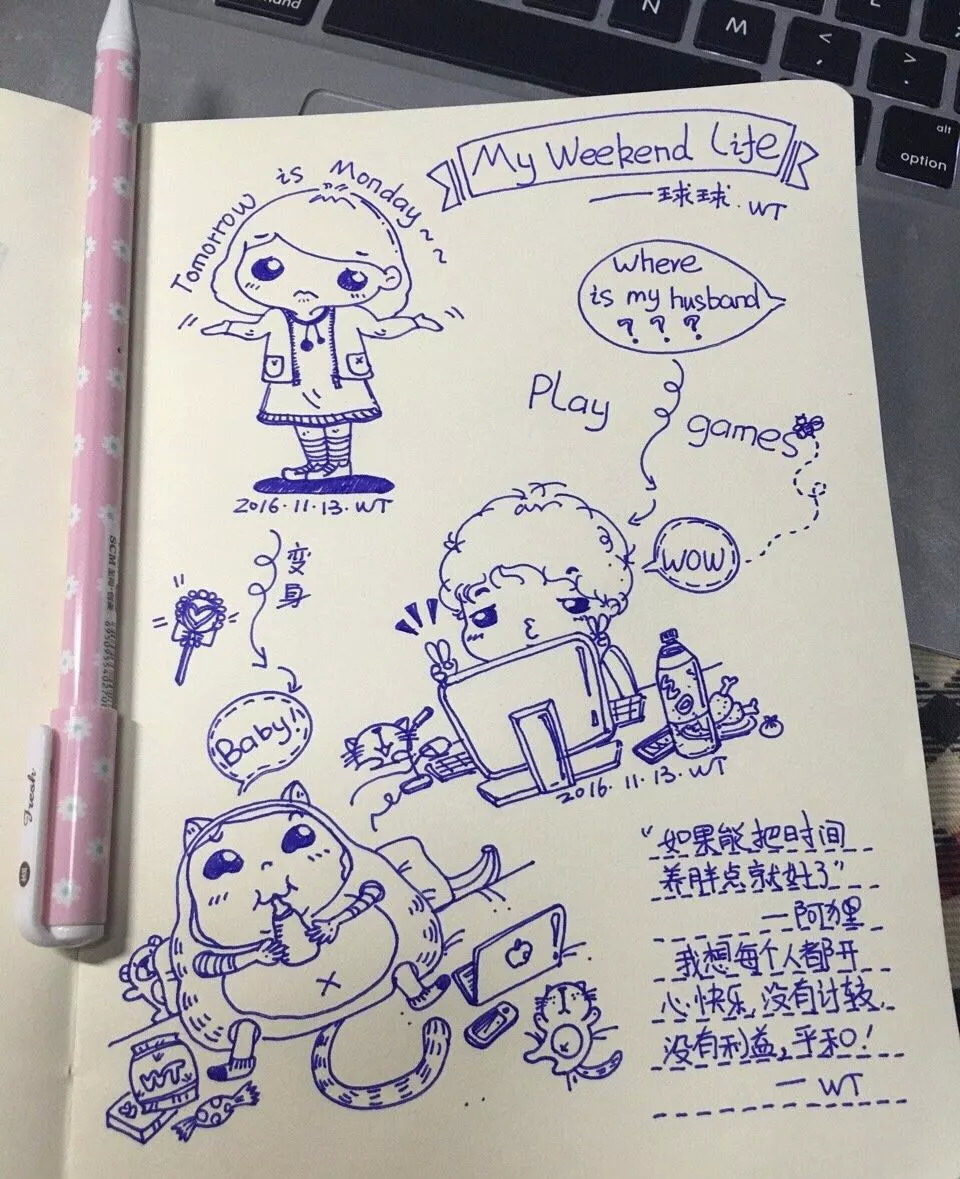 My Weekend Life
——球球.WT
Tomorrow is Monday~~
2016.11.13.WT
变
身
Baby!
where
is my husband
? ? ?
Play
games
WOW
2016.11.13.WT
WT
"如果能把时间
养胖点就好了"
—阿狸
我想每个人都开
心快乐,没有计较,
没有利益,平和!
— WT
Fresh
SCM
N
M
<
,
>
.
L
alt
option